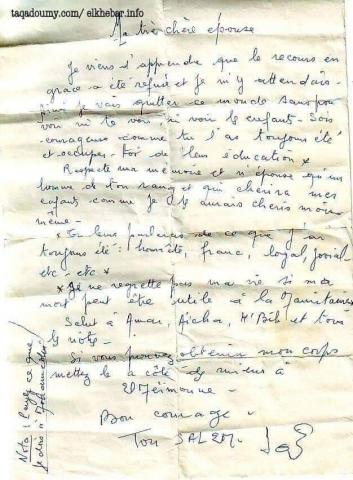 taqadoumy.com/ elkhebar.info
Ma très chère epouse
Je viens d'apprendre que le recours en
grâce a été refusé et je m'y attendais
je vais quitter ce monde sans pou
voir ni te voir ni voir les enfants. Sois
courageuse comme tu l'as toujours été
et occupes-toi de leur éducation
Respecte ma mémoire et n'épouse qu'un
homme de ton rang et qui cherira mes
enfants comme je les aurais cheris moi
même -
leur de ce que j'ai
toujours été: honnête, franc, loyal, jovial
etc - etc
Je ne regrette pas ma vie si ma
mort peut être utile à la Mauritanie
Salut à Amar, Aicha, M'Bih et tous
les notres
Si vous pouvez obtenir mon corps
mettez le à côté des miens à
Bon courage -
Ton
Nota: Payez ce que
je dois à